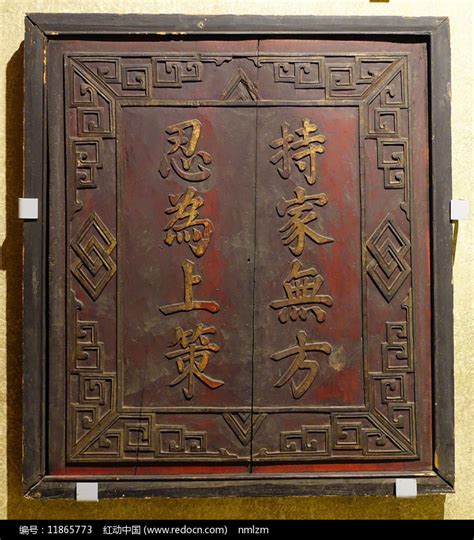 持家無方
忍為上策
编号：11865773 红动中国 (www.redocn.com) nmlzm